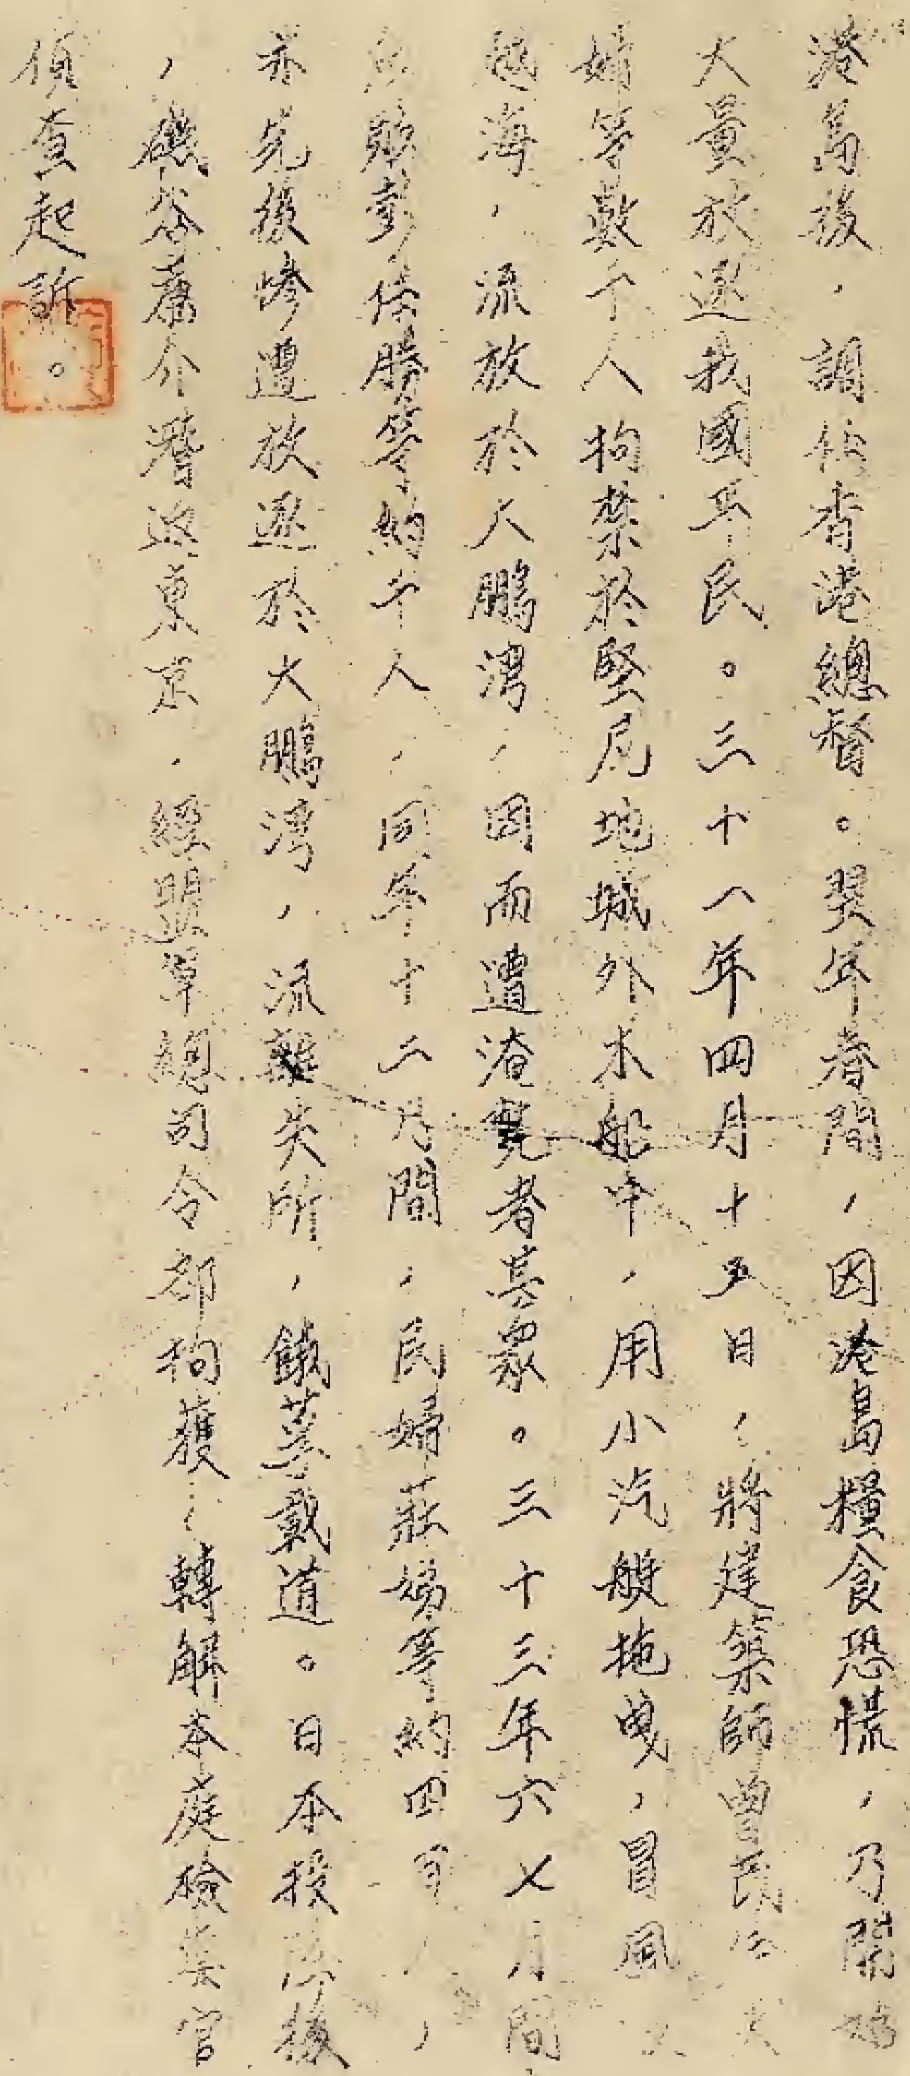 港島後，調任香港總督。翌年春間，因港島糧食恐慌，乃開始
大量放逐我國平民。三十一年四月十五日，將建築師曾
婦等數千人拘禁於堅尼地城外木船中，用小汽艇拖曳，冒風
越海，流放於大鵬灣，因而遭淹斃者甚眾。三十三年六七月間，
魚販彭佳勝等約千人，同年十二月間，民婦莊娣等約四百人，
亦先後慘遭放逐於大鵬灣，流離失所，餓莩載道。日本投降後
，磯谷廉介潛返東京，經盟軍總司令部拘獲，轉解本庭檢察官
偵查起訴。